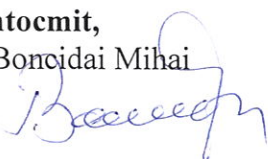 ntocmit,
Boncidai Mihai